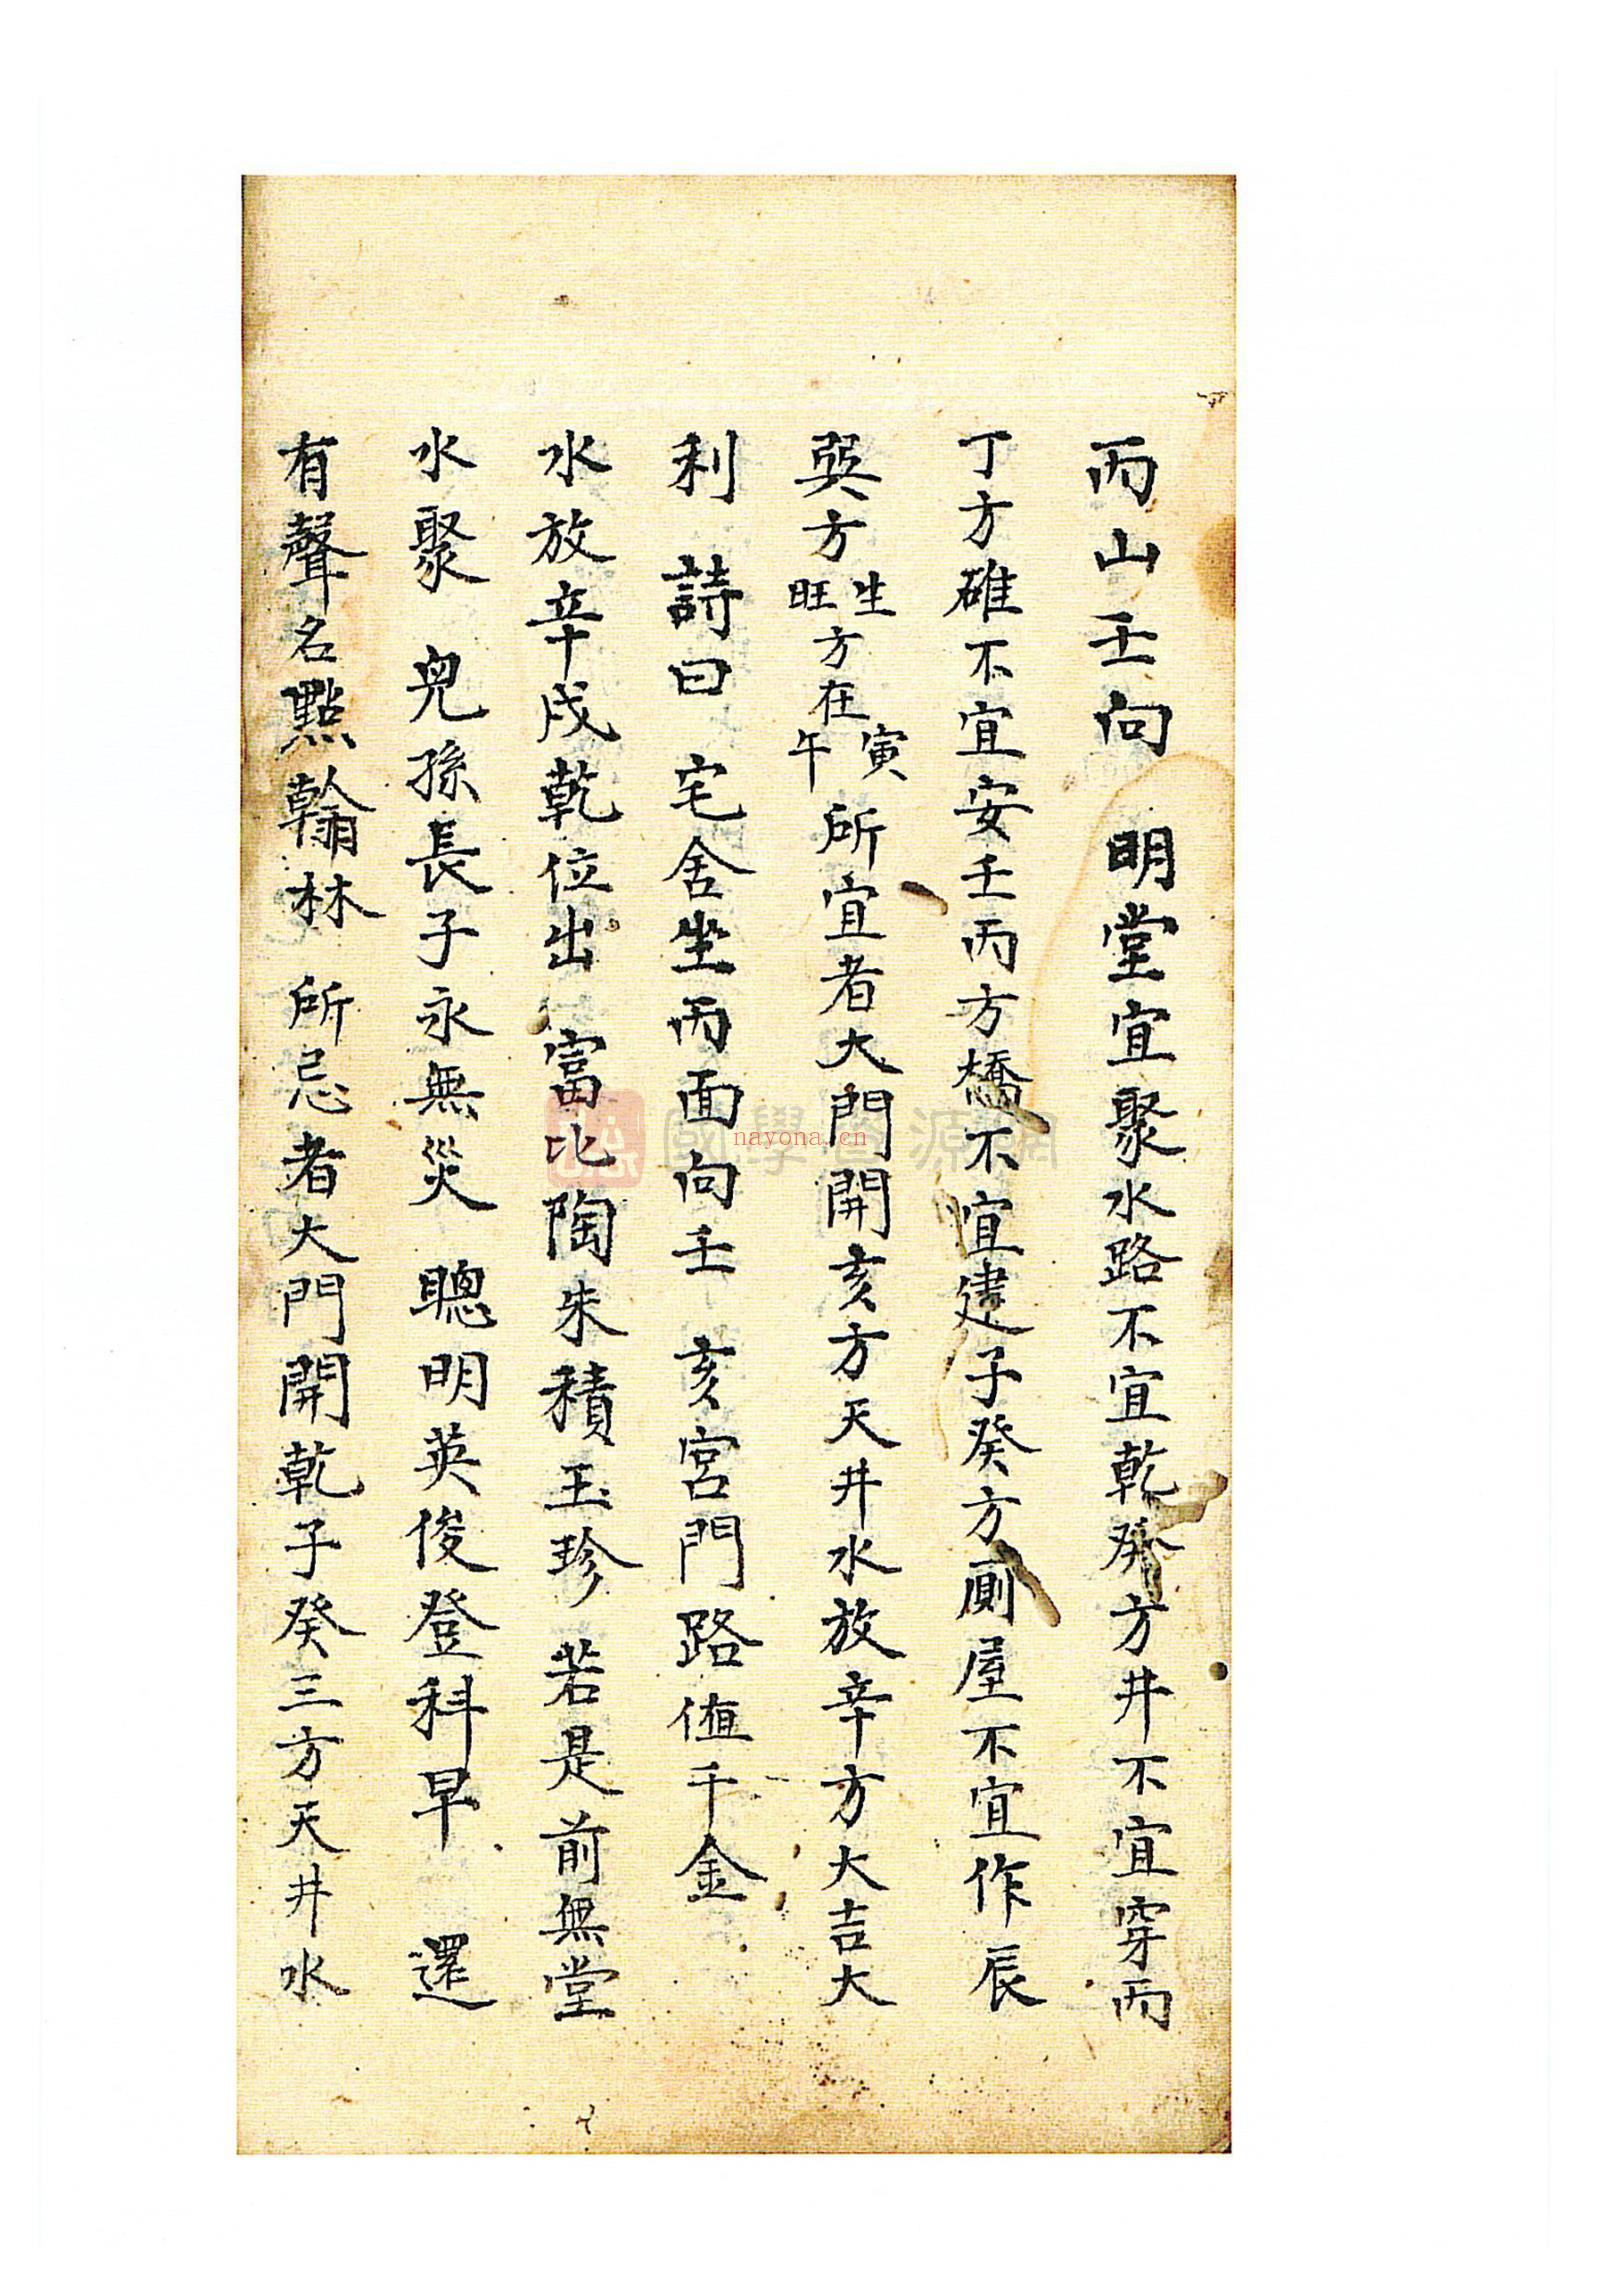 丙山壬向　明堂宜聚水路不宜乾癸方井不宜穿丙
丁方碓不宜安壬丙方橋不宜建子癸方廁屋不宜作辰
巽方生旺方在寅午所宜者大門開亥方天井水放辛方大吉大
利　詩曰　宅舍坐丙面向壬　亥宮門路值千金
水放辛戌乾位出　富比陶朱積玉珍　若是前無堂
水聚　兒孫長子永無災　聰明英俊登科早　還
有聲名點翰林　所忌者大門開乾子癸三方天井水
國學資源網
nayona.cn